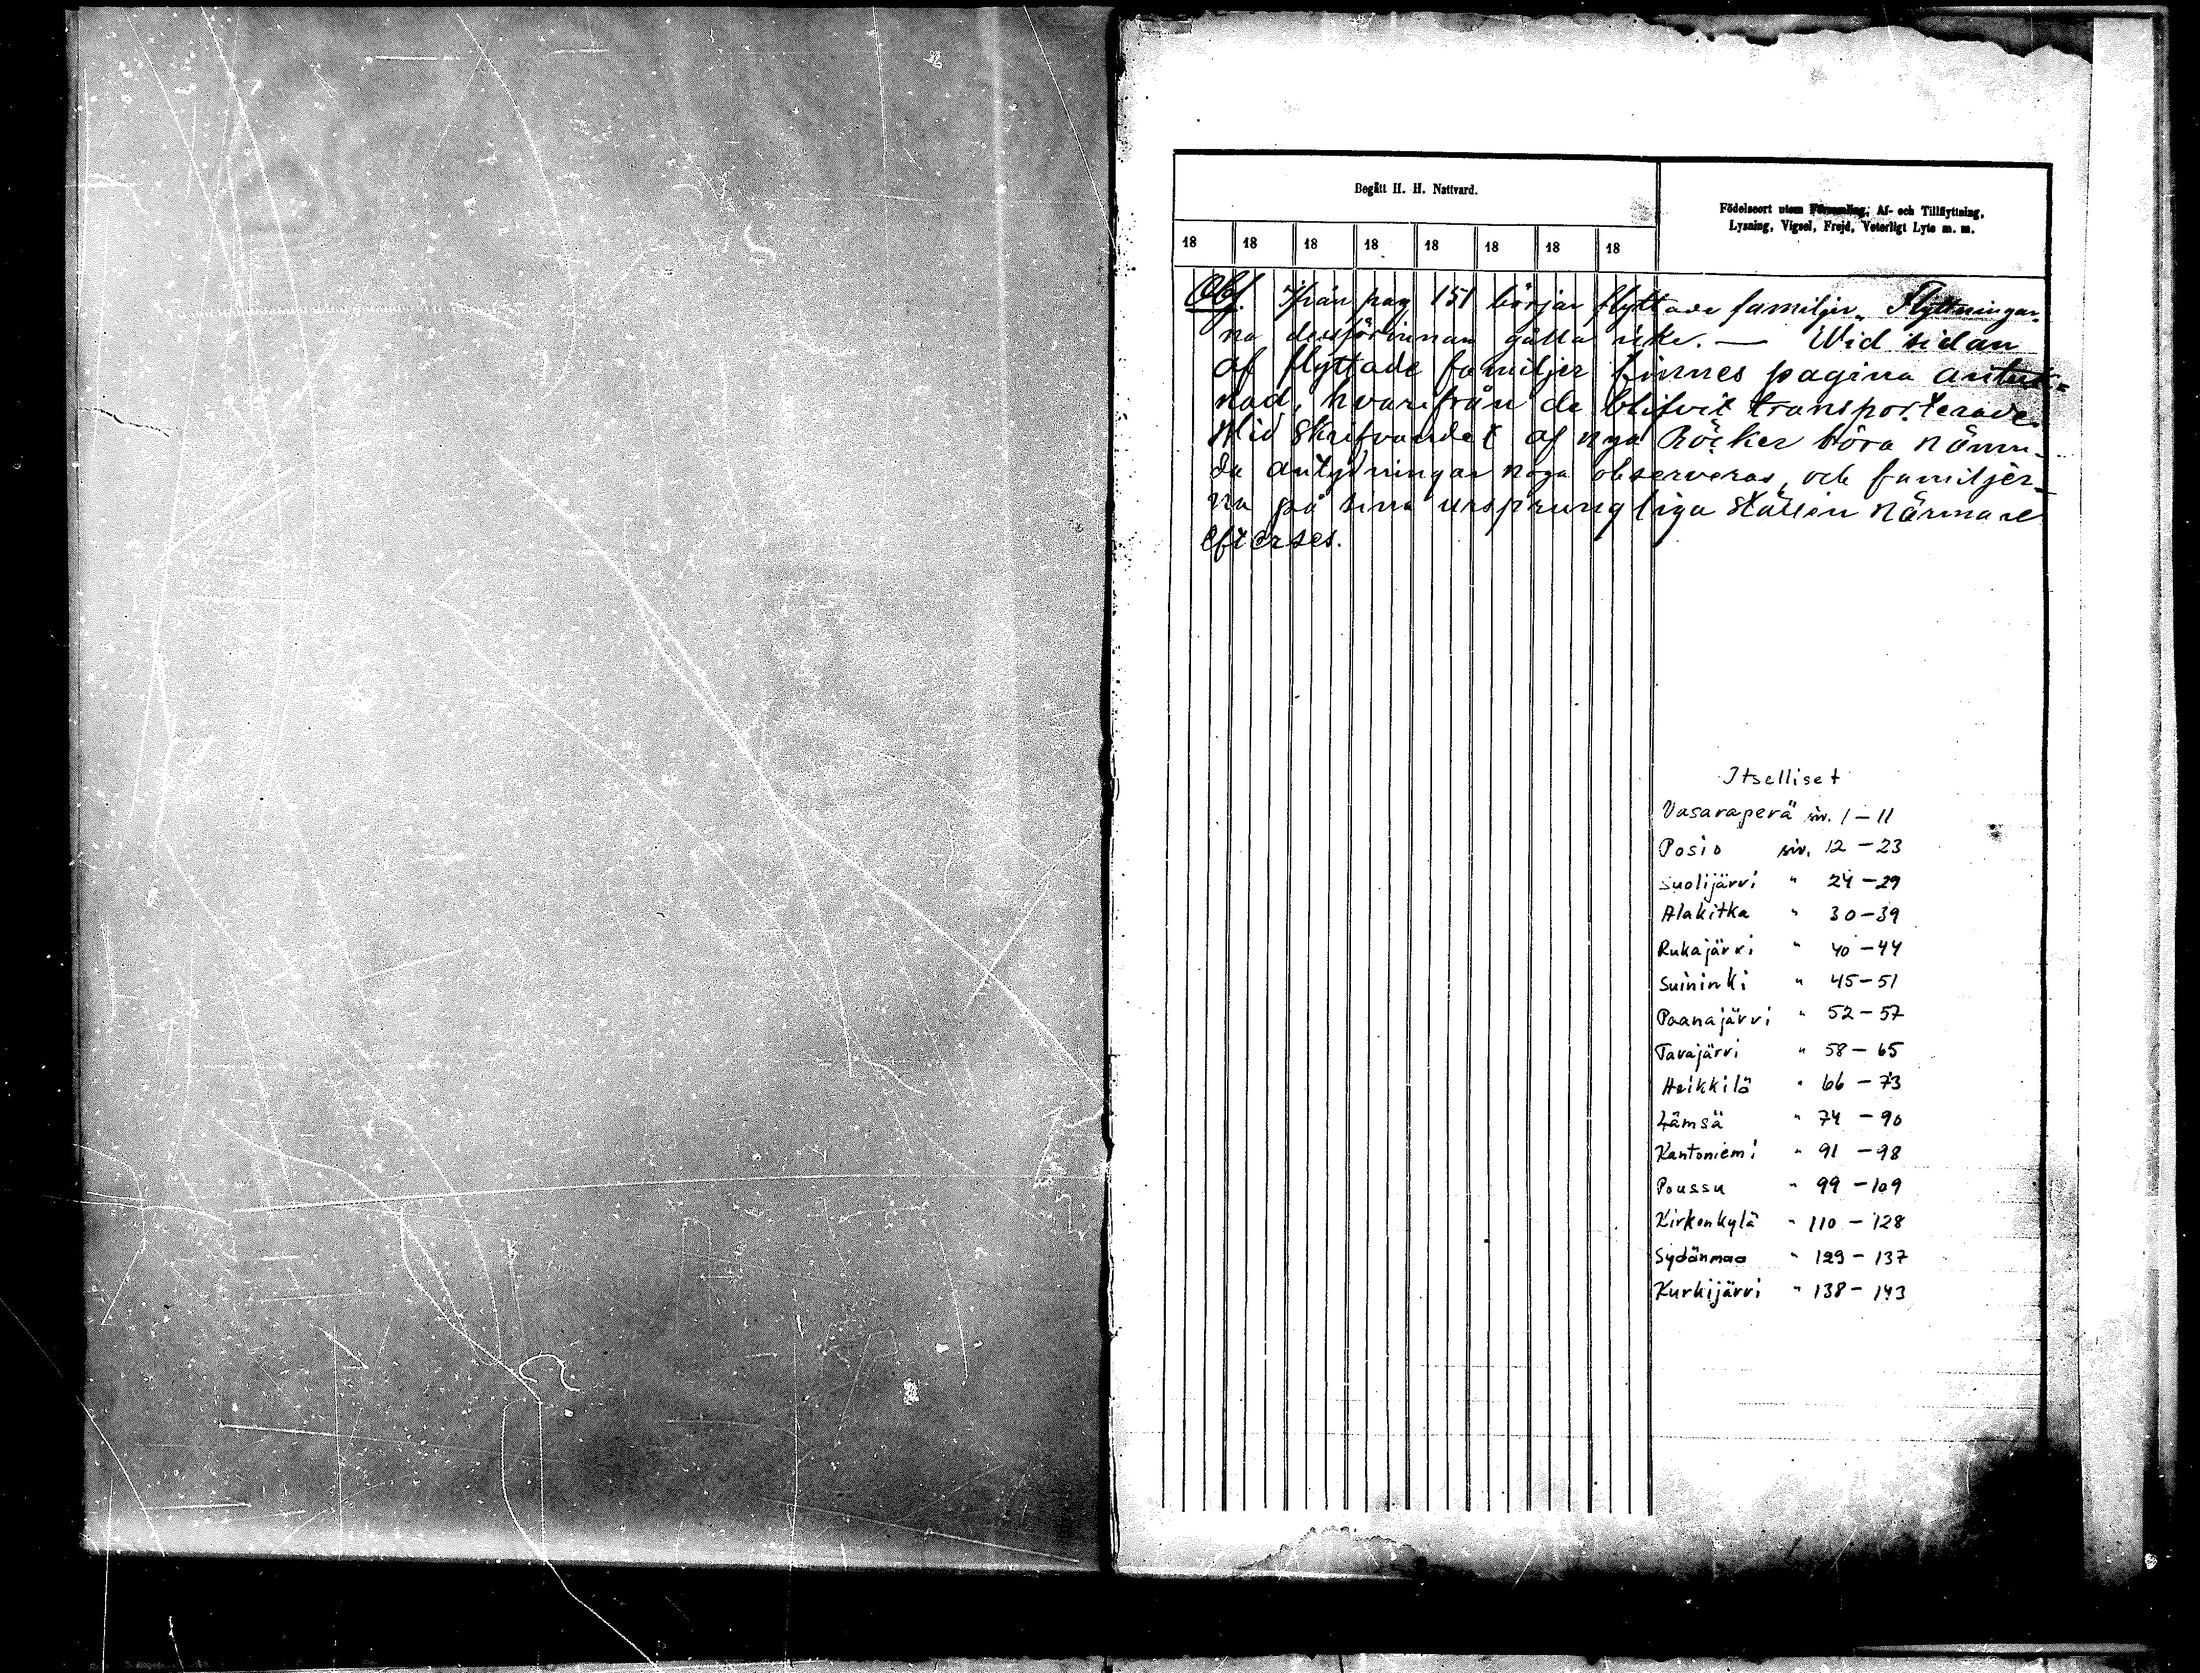 Begått H. H. Nattvard.
Födelseort utom Församling, Af- och Tillflyttning,
Lysning, Vigsel, Frejd, Veterligt Lyte m. m.
18 18 18 18 18 18 18 18
Obs. Ifrån pag 151 börjar flyttade familjer. Flyttningar-
na dessförinnan gälla icke. — Wid sidan
af flyttade familjer finnes pagina anteck-
nad, hvarifrån de blifvit transporterade.
Wid Skrifvandet af nya Böcker böra nämn-
da antydningar noga observeras, och familjer-
na på sina ursprungliga ställen närmare
efterses.
Itselliset
Vasaraperä siv. 1 – 11
Posio siv. 12 – 23
Suolijärvi " 24 – 29
Alakitka " 30 – 39
Rukajärvi " 40 – 44
Suininki " 45 – 51
Paanajärvi " 52 – 57
Tavajärvi " 58 – 65
Heikkilä " 66 – 73
Lämsä " 74 – 90
Kantoniemi " 91 – 98
Poussu " 99 – 109
Kirkonkylä " 110 – 128
Sydänmaa " 129 – 137
Kurkijärvi " 138 – 143